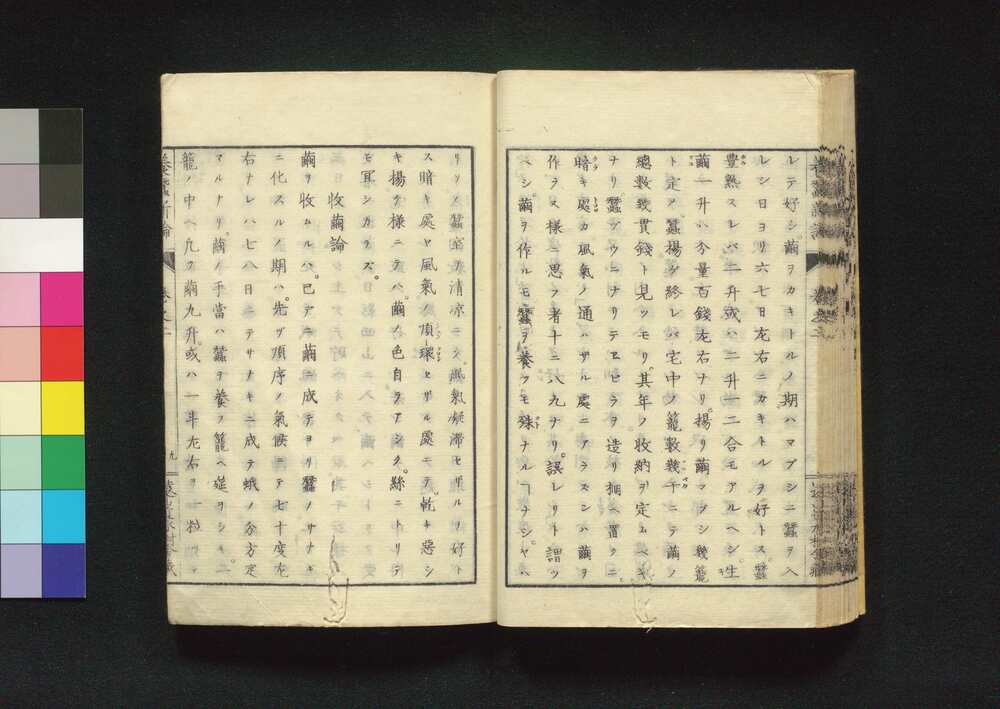 レテ好シ繭ヲカキトルノ期ハマブシニ蠶ヲ入
レシ日ヨリ六七日左右ニカキトルヲ好トス。蠶
豊熟スレバ一升或ハ二升一二合モアルヘシ。生
繭一升ハ分量百錢左右ナリ。揚リ繭マブシ幾籠
ト定ア蠶揚ゲ終レバ宅中ノ籠數幾千ニテ繭ノ
總數幾貫錢ト見ツモリ。其年ノ收納ヲ定ムベキ
ナリ。蠶ヅウニナリテヒビラヲ造リ棚ヘ置クニ。
暗キ處カ風氣ノ通ハザル處ニアラズンハ繭ヲ
作ラヌ様ニ思フ者十ニ八九ナリ。誤レリト謂ツ
ベシ。繭ヲ作ルモ蠶ヲ養フモ殊ナルヿナシ。ヤハ
リノ蠶室ヲ清凉ニシ。風氣凝滞セザルヲ好ト
ス暗キ處ヤ風氣ノ頂環セザル處ニテ。乾キ惡シ
キ揚ゲ様ニテハ繭ノ色自ラアシク。絲ニトリテ
モ耳シカラズ。
收繭論
繭ヲ收ムルハ。已テニ繭ニ成テヨリ蠶ノサナギ
ニ化スルノ期ハ。先ヅ順序ノ氣候ニテ七十度左
右ナレハ七八日ニテサナギニ成テ蛾ノ分方定
マルナリ。繭ノ手當ハ蠶ヲ養フ籠ヘ莚ヲシキ。二
籠ノ中ヘ凡ク繭九升。或ハ一斗左右ヲ一粒
養蠶新論
卷之二
九